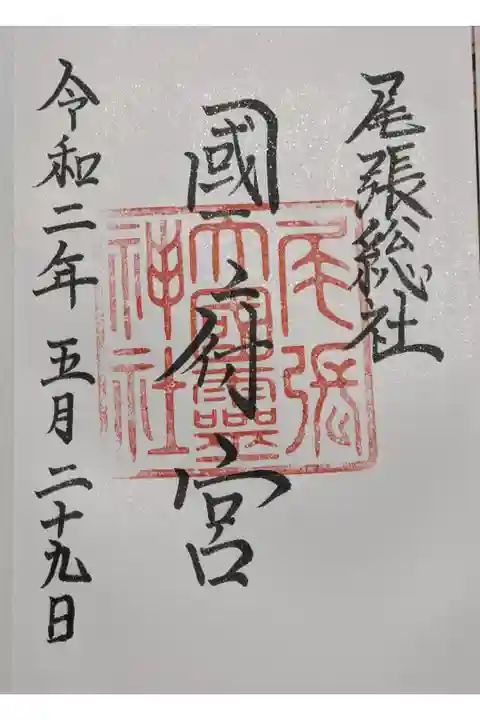 尾張総社
國府宮
令和二年 五月 二十九日
尾張
大國霊
神社